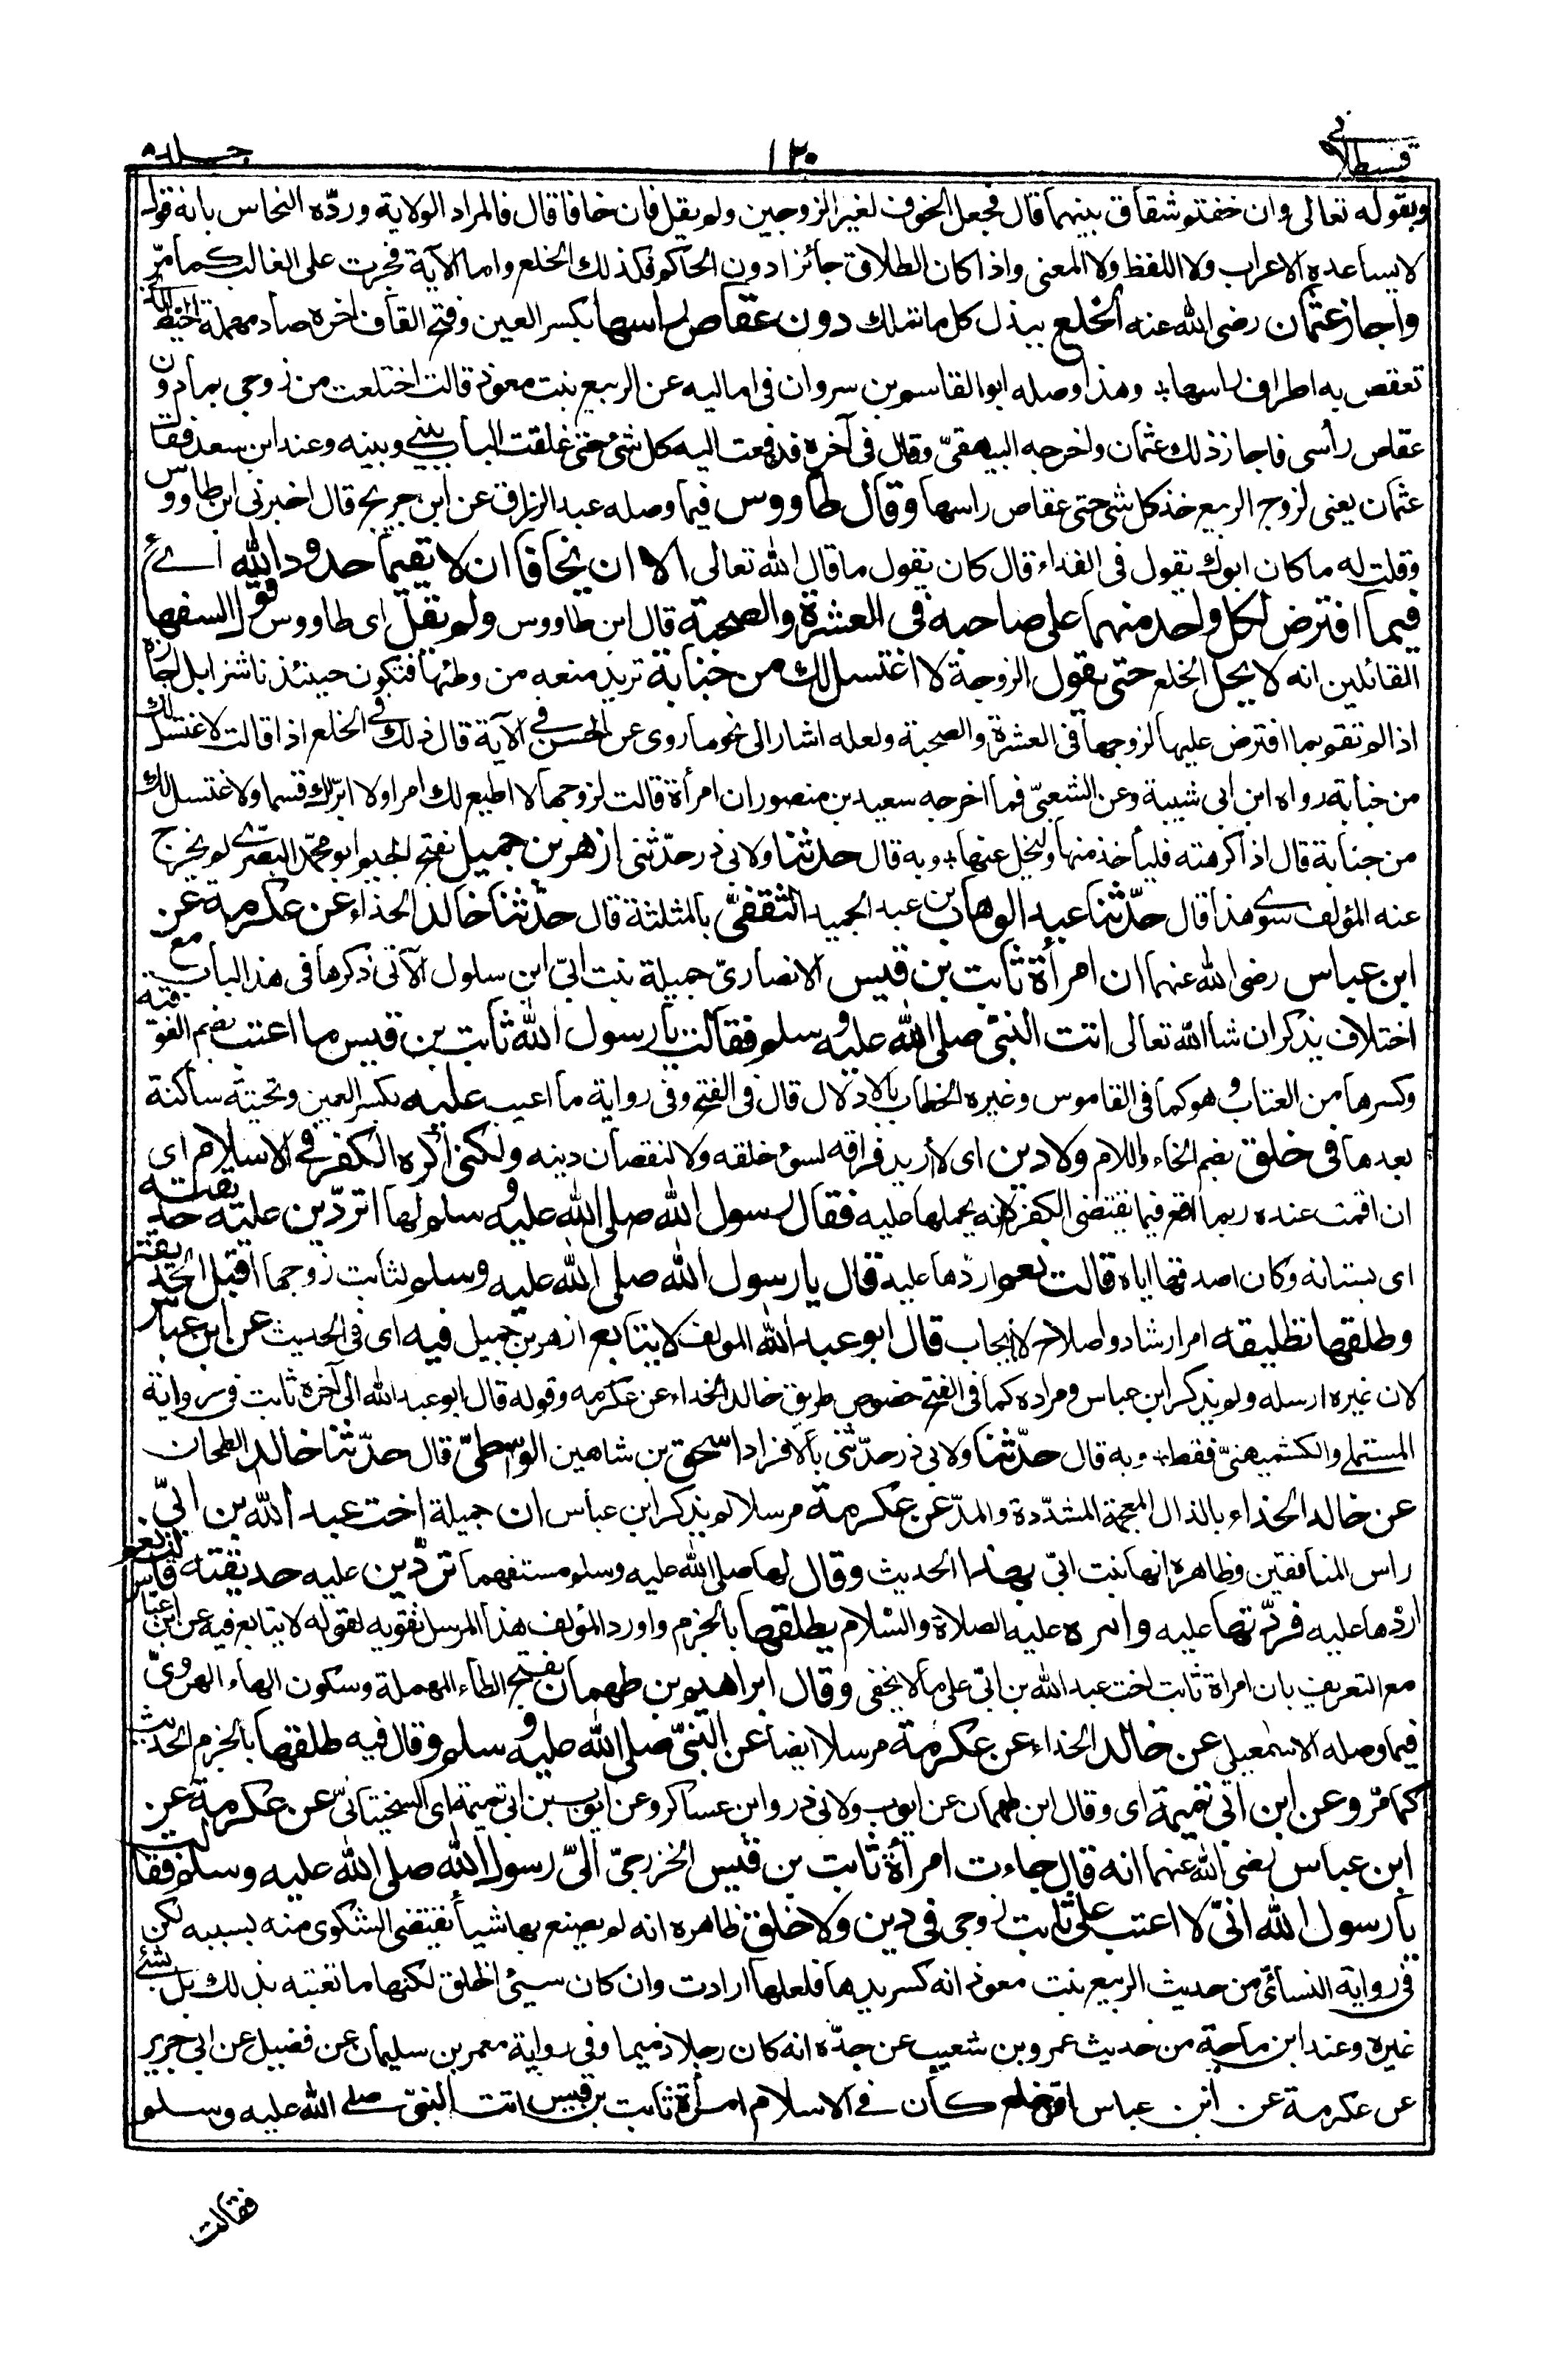 قسطلانی
١٢٠
جلد ٨
وبقوله تعالى وان خفتم شقاق بينهما قال فجعل الخوف لغير الزوجين ولم يقل فان خافا قال فالمراد الولاية وردّه النحاس بانه قول
لا يساعده الاعراب ولا اللفظ ولا المعنى واذا كان الطلاق جائزا دون الحاكم فكذلك الخلع واما الآية فجرت على الغالب كما مرّ
واجاز عثمان رضى الله عنه الخلع ببذل كل ما تملك دون عقاص راسها بكسر العين وفتح القاف اخره صاد مهملة الخيط الذى
تعقص به اطراف راسها وهذا وصله ابو القاسم بن سروان فى اماليه عن الربيع بنت معوذ قالت اختلعت من زوجى بما دون
عقاص رأسى فاجاز ذلك عثمان واخرجه البيهقىّ وقال فى آخره فدفعت اليه كل شئ حتى غلقت الباب بينى وبينه وعند ابن سعد فقال
عثمان يعنى لزوج الربيع خذ كل شئ حتى عقاص راسها وقال طاووس فيما وصله عبد الرزاق عن ابن جريج قال اخبرنى ابن طاووس
وقلت له ما كان ابوك يقول فى الفداء قال كان يقول ما قال الله تعالى الا ان يخافا ان لا يقيما حدود الله اے
فيما افترض لكل واحد منهما على صاحبه فى العشرة والصحبة قال ابن طاووس ولم يقل اى طاووس قول السفها
القائلين انه لا يحل الخلع حتى يقول الزوجة لا اغتسل لك من جنابة تريد منعه من وطئها فتكون حينئذ ناشزا بل اجازه
اذا لم تقم بما افترض عليها لزوجها فى العشرة والصحبة ولعله اشار الى نحو ما روى عن الحسن فى الآية قال ذلك فى الخلع اذا قالت لا اغتسل لك
من جنابة رواه ابن ابى شيبة وعن الشعبىّ فما اخرجه سعيد بن منصور ان امرأة قالت لزوجها لا اطيع لك امرا ولا ابرّ لك قسما ولا اغتسل لك
من جنابة قال اذا كرهته فليأخذ منها وليخل عنها وبه قال حدثنا ولابى ذر حدّثنى ازهر بن جميل بفتح الجيم ابو محمد البصرى لم يخرج
عنه المؤلف سوے هذا قال حدّثنا عبد الوهاب بن عبد الحميد الثقفىّ بالمثلثة قال حدّثنا خالد الحذاء عن عكرمة عن
ابن عباس رضى الله عنهما ان امرأة ثابت بن قيس الانصارىّ جميلة بنت ابىّ ابن سلول الآتى ذكرها فى هذا الباب مع
اختلاف يذكر ان شا الله تعالى اتت النبىّ صلى الله عليه وسلم فقالت يا رسول الله ثابت بن قيس ما اعتب بضم الفوقية
وكسرها من العتاب وهو كما فى القاموس وغيره الخطاب بالادلال قال فى الفتح وفى رواية ما اعيب عليه بكسر العين وتحتية ساكنة
بعدها فى خلق بضم الخاء واللام ولا دين اى لا اريد فراقه لسوء خلقه ولا لنقصان دينه ولكنى اكره الكفر فى الاسلام اى
ان اقمت عنده ربما اقع فيما يقتضى الكفر لانه يحملها عليه فقال رسول الله صلى الله عليه وسلم لها اتردّين عليه حديقته
اى بستانه وكان اصدقها اياه قالت نعم اردّها عليه قال يا رسول الله صلى الله عليه وسلم لثابت زوجها اقبل الحديقة
وطلقها تطليقه امر ارشاد واصلاح لا ايجاب قال ابو عبد الله المولف لا يتابع ازهر بن جميل فيه اى فى الحديث عن ابن عباس
لان غيره ارسله ولم يذكر ابن عباس ومراده كما فى الفتح خصوص طريق خالد الحذاء عن عكرمه وقوله قال ابو عبد الله الى آخره ثابت فى رواية
المستملى والكشميهنىّ فقط وبه قال حدّثنا ولابى ذر حدّثنى بالافراد اسحق بن شاهين الواسطىّ قال حدّثنا خالد الطحان
عن خالد الحذاء بالذال المعجمة المشدّدة والمدّ عن عكرمة مرسلا لم يذكر ابن عباس ان جميلة اخت عبد الله بن ابىّ
راس المنافقين وظاهره انها بنت ابىّ بهذا الحديث وقال لها صلى الله عليه وسلم مستفهما تردّين عليه حديقته قالت نعم
اردّها عليه فردّتها عليه وامره عليه الصلاة والسلام يطلقها بالجزم واورد المؤلف هذا المرسل تقويه لقوله لا يتابع فيه عن ابن عباس
مع التعريف بان امراة ثابت اخت عبد الله بن ابىّ على ما لا يخفى وقال ابراهيم بن طهمان بفتح الطاء المهملة وسكون الهاء الهروىّ
فيما وصله الاسمعيلى عن خالد الحذاء عن عكرمة مرسلا ايضا عن النبىّ صلى الله عليه وسلم وقال فيه طلقها بالجزم الحديث
كما مرّ وعن ابن ابى تميمة اى وقال ابن طهمان عن ايوب ولابى ذر وابن عساكر وعن ايوب بن ابى تميمة اى السختيانىّ عن عكرمة عن
ابن عباس رضى الله عنهما انه قال جاءت امرأة ثابت بن قيس الخزرجىّ الىّ رسول الله صلى الله عليه وسلم فقالت
يا رسول الله انىّ لا اعتب على ثابت زوجى فى دين ولا خلق ظاهره انه لم يصنع بها شيأ يقتضى الشكوى منه بسببه لكن
فى رواية النسائى من حديث الربيع بنت معوذ انه كسر يدها فلعلها ارادت وان كان سيئ الخلق لكنها ما تعتبه بذلك بل بشئ
غيره وعند ابن ماجة من حديث عمرو بن شعيب عن جدّه انه كان رجلا ذميما وفى رواية معمر بن سليمان عن فضيل عن ابى جرير
عن عكرمة عن ابن عباس اول خلع كان فى الاسلام امرأة ثابت بن قيس اتت النبىّ صلى الله عليه وسلم
فقالت